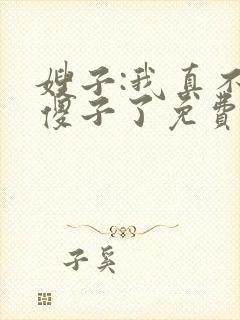 嫂子:我真不
傻子了免费
子奚